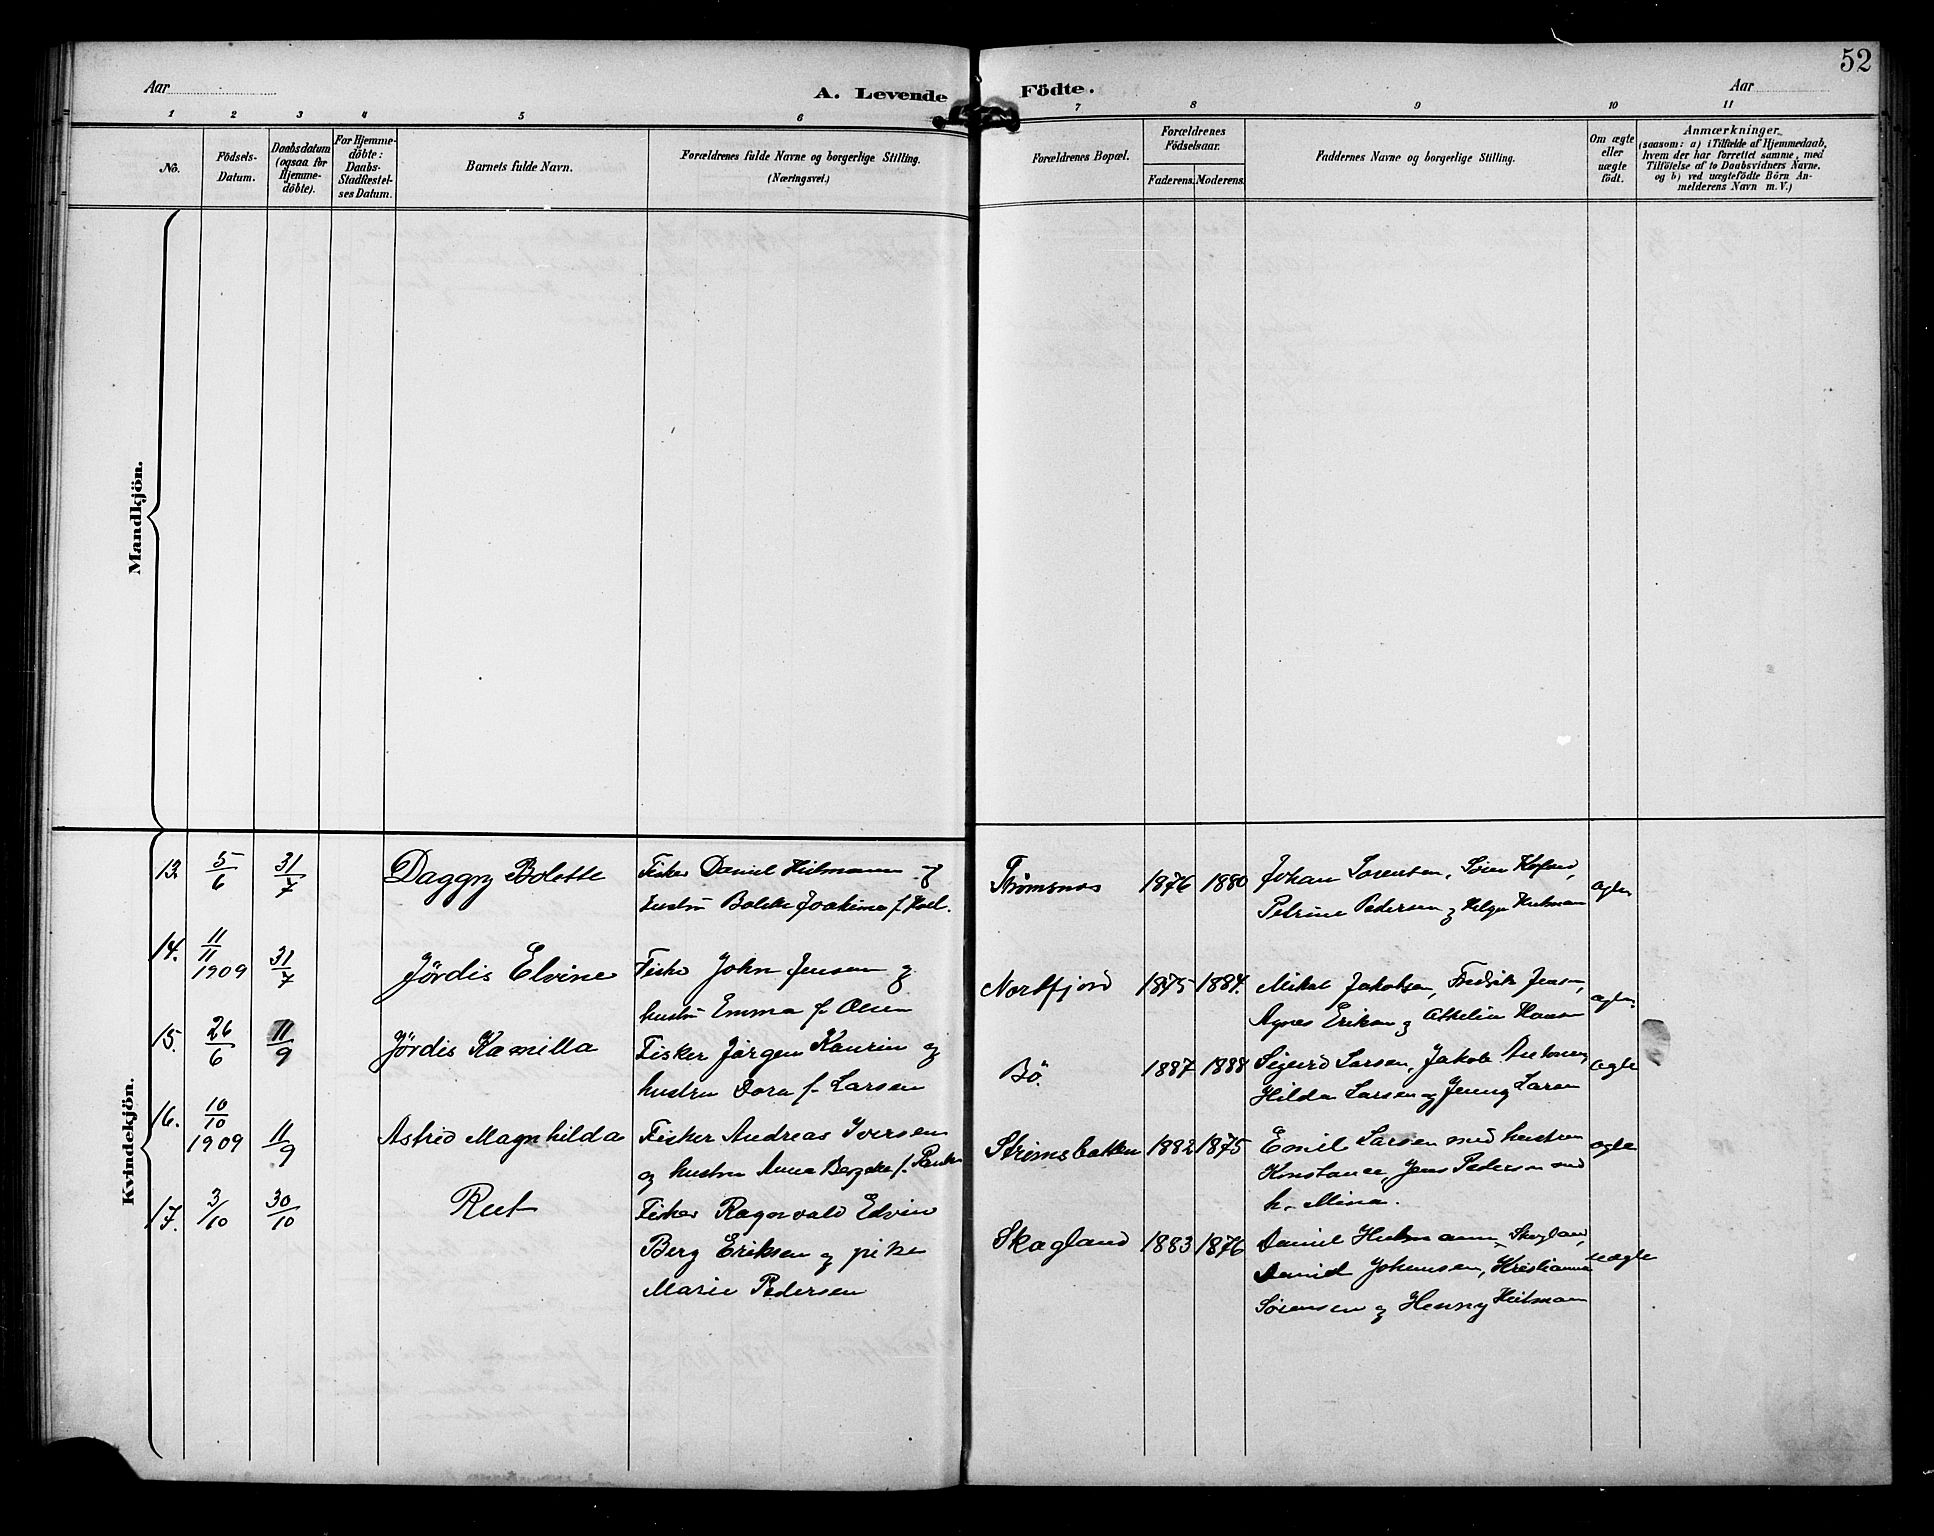 52
Aar
A. Levende Födte.
Aar
1 2 3 4 5 6 7 8 9 10 11
No.
Födsels-Datum.
Daabsdatum (ogsaa for Hjemme-döbte).
For Hjemme-döbte: Daabs-Stadfæstel-ses Datum.
Barnets fulde Navn.
Forældrenes fulde Navne og borgerlige Stilling.
(Næringsvei.)
Forældrenes Bopæl.
Forældrenes Födselsaar.
Faderens. Moderens.
Faddernes Navne og borgerlige Stilling.
Om ægte eller uægte födt.
Anmærkninger
(saasom: a) i Tilfælde af Hjemmedaab, hvem der har forrettet samme, med Tilföielse af to Daabsvidners Navne. og b) ved uægtefödte Börn An-melderens Navn m. V.)
Mandkjön.
Kvindekjön.
13. 5/6 31/7 Daggny Bolette Fisker Daniel Heitmann og Strømsnes 1876 1880 Johan Sorensen,
hustru Joakime f. Petrine Pedersen og Helga Heitmann
14. 11/11 1909 31/7 Jördis Elvine Fisker John Jensen og Nordfjord 1875 1884. Mikal Jakobsen, Fredrik Jensen,
hustru Emma f. Olsen Agnes Eriksen og Hansen
15. 26/6 11/9 Jördis Kamilla Fisker Jørgen Kaurin og Bö. 1887 1888 Sigurd Larsen, Jakob ægte
hustru Dora f. Larsen Hilda Larsen og Jenny Larsen
16. 10/10 1909 11/9 Astrid Magnhilda Fisker Andreas Iversen Strömsbakken 1882 1875 Emil Larsen med hustru ægte
og hustru Anna f. Konstance, Jens Pedersen med
h. Mina.
17. 3/10 30/10 Rut Fisker Ragnvald Edvin
Berg Eriksen og pike Skagland 1883 1876 Daniel Heitmann, Skagland, uægte
Marie Pedersen Daniel Johansen, Kristianna
Sörensen og Henny Heitmann